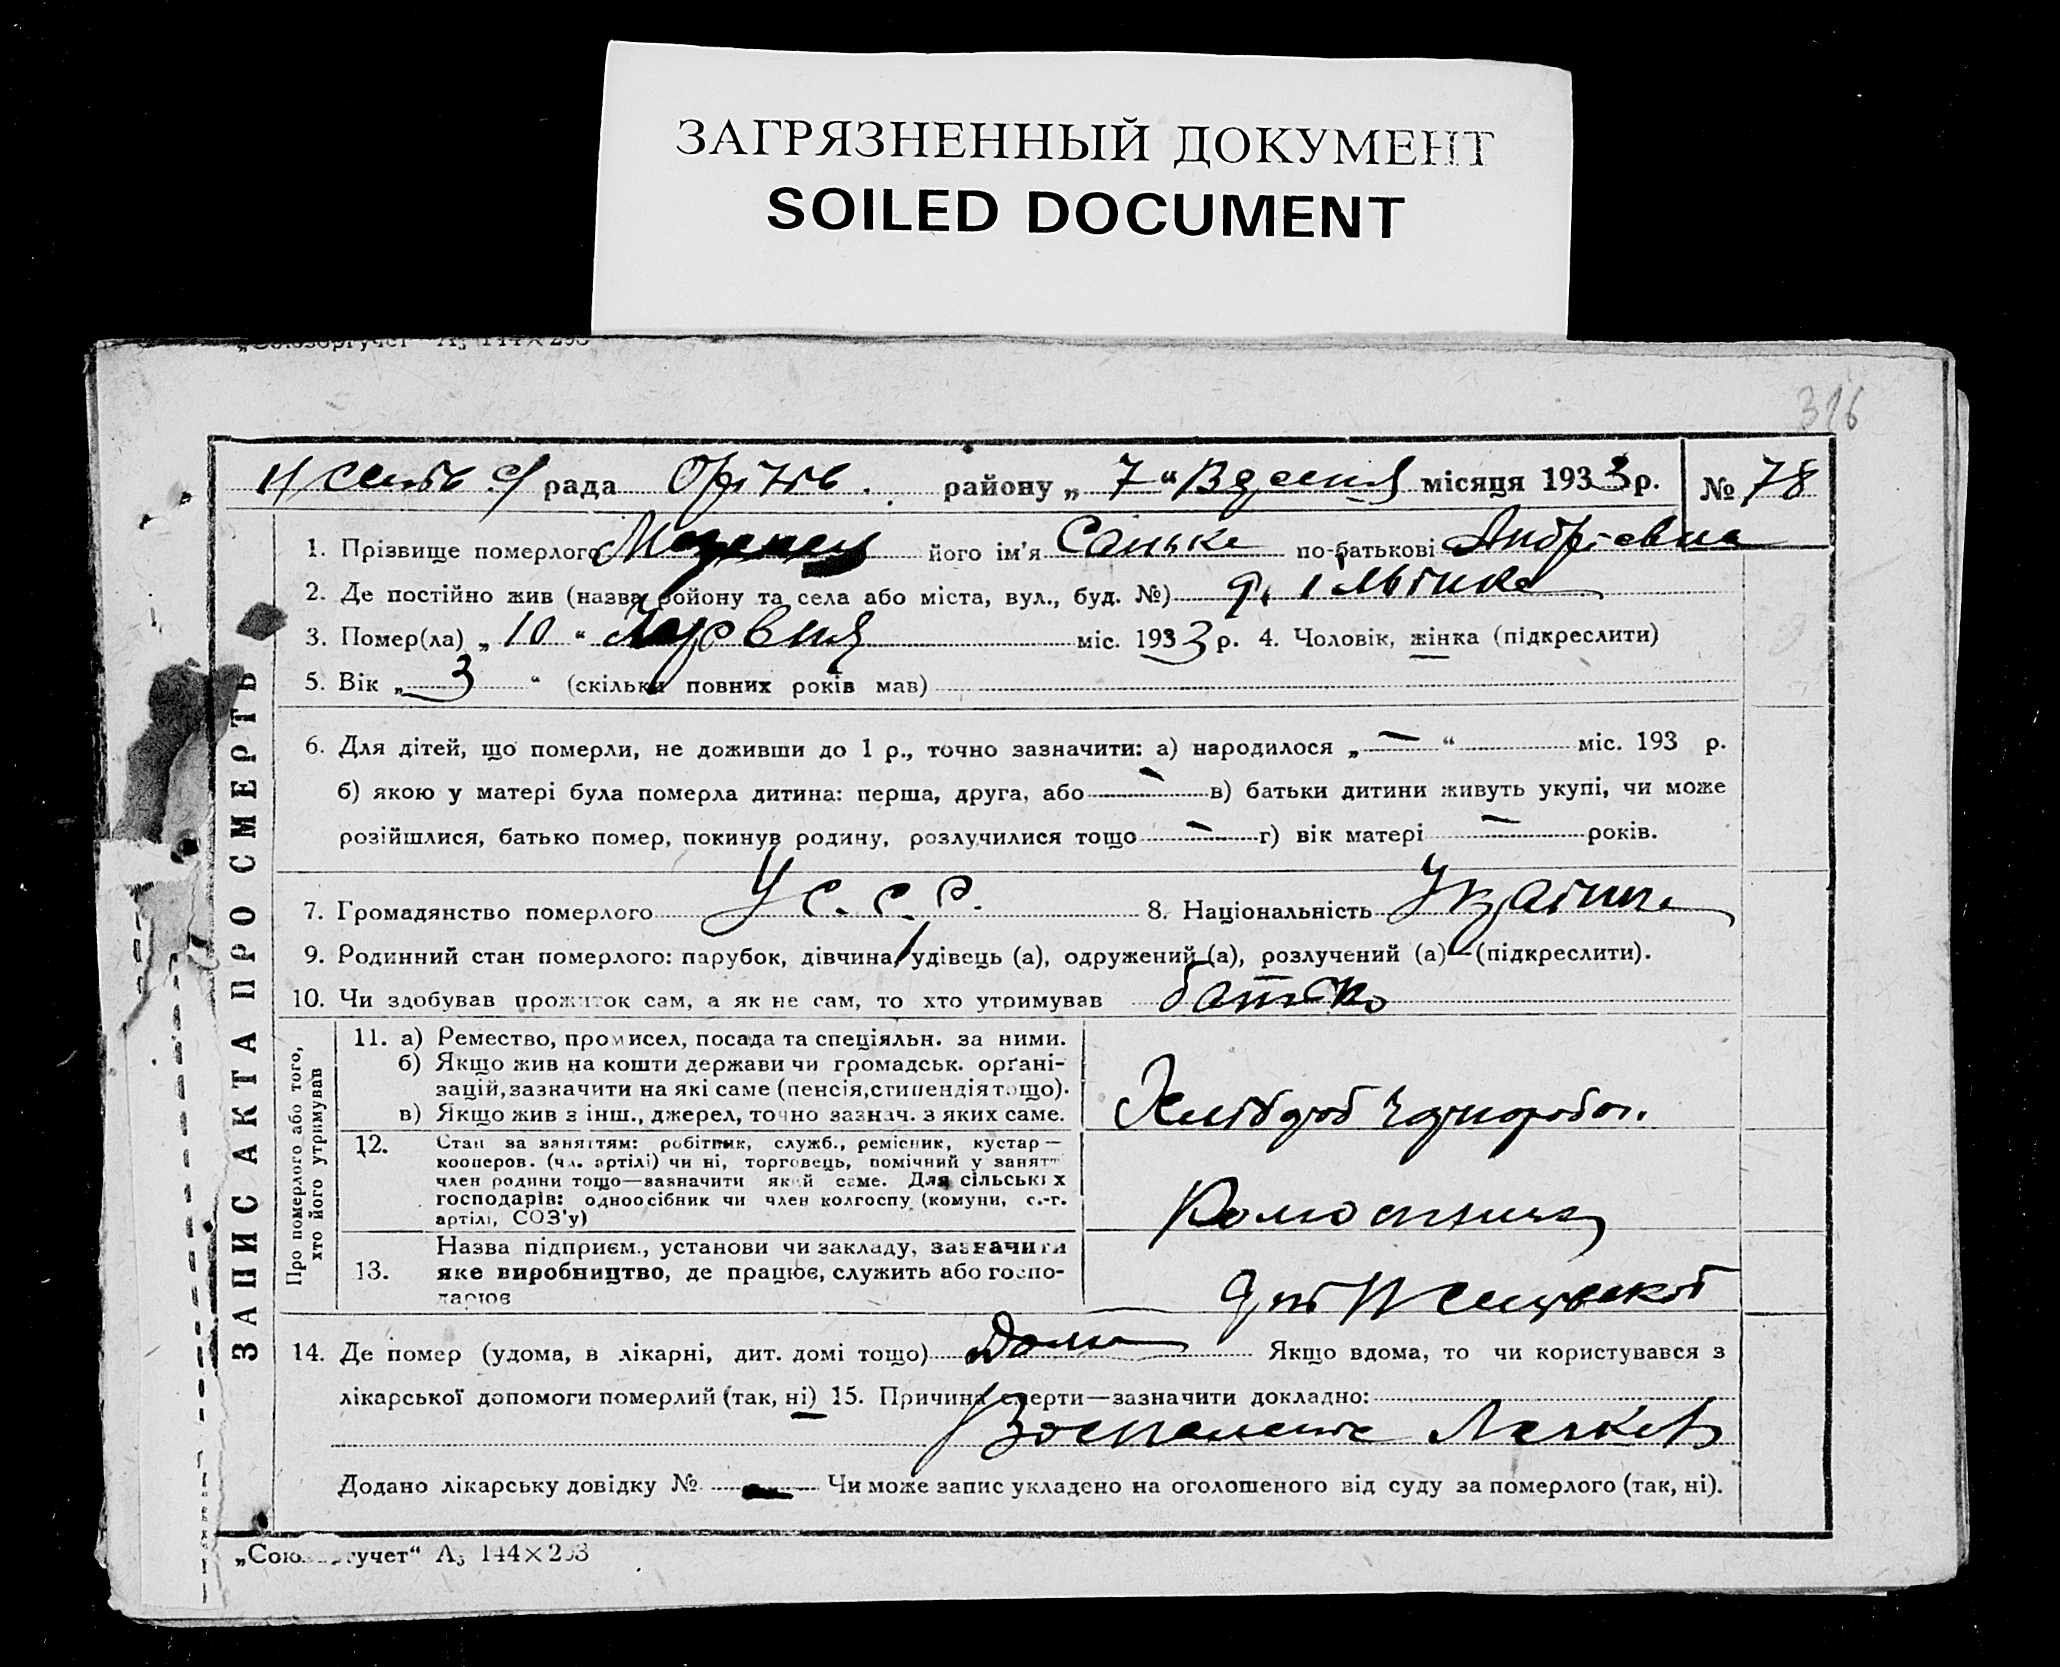 ЗАГРЯЗНЕННЫЙ ДОКУМЕНТ
SOILED DOCUMENT
316
рада района району „ 7 “ Вдесня місяця 1933 р. № 78
1. Прізвище померлого його ім'я Санька по-батькові Андрієвна
2. Де постійно жив (назва району та села або міста, вул., буд. №)
3. Помер(ла) „ 10 “ Червня міс. 1933 р. 4. Чоловік, жінка (підкреслити)
5. Вік „ 3 “ (скільки повних років мав)
6. Для дітей, що померли, не доживши до 1 р., точно зазначити: а) народилося „ — “ міс. 193 р.
б) якою у матері була померла дитина: перша, друга, або — в) батьки дитини живуть укупі, чи може
розійшлися, батько помер, покинув родину, розлучилися тощо — г) вік матері — років.
7. Громадянство померлого У С. С. Р. 8. Національність
9. Родинний стан померлого: парубок, дівчина, удівець (а), одружений (а), розлучений (а)—(підкреслити).
10. Чи здобував прожиток сам, а як не сам, то хто утримував батько
ЗАПИС АКТА ПРО СМЕРТЬ
Про померлого або того, хто його утримував
11. а) Ремество, промисел, посада та спеціяльн. за ними.
б) Якщо жив на кошти держави чи громадськ. орґані-
зацій, зазначити на які саме (пенсія, стипендія тощо).
в) Якщо жив з інш., джерел, точно зазнач. з яких саме.
12. Стан за заняттям: робітник, служб., ремісник, кустар —
кооперов. (чл. артілі) чи ні, торговець, помічний у занятті
член родини тощо—зазначити який саме. Для сільських
господарів: одноосібник чи член колгоспу (комуни, с.-г.
артілі, СОЗ'у)
13. Назва підприєм., установи чи закладу, зазначити
яке виробництво, де працює, служить або госпо-
дарює
14. Де помер (удома, в лікарні, дит. домі тощо) Дома Якщо вдома, то чи користувався з
лікарської допомоги померлий (так, ні) 15. Причина смерти—зазначити докладно:
Воспаление Легких
Додано лікарську довідку № — Чи може запис укладено на оголошеного від суду за померлого (так, ні).
„Союзоргучет“ А₅ 144×203